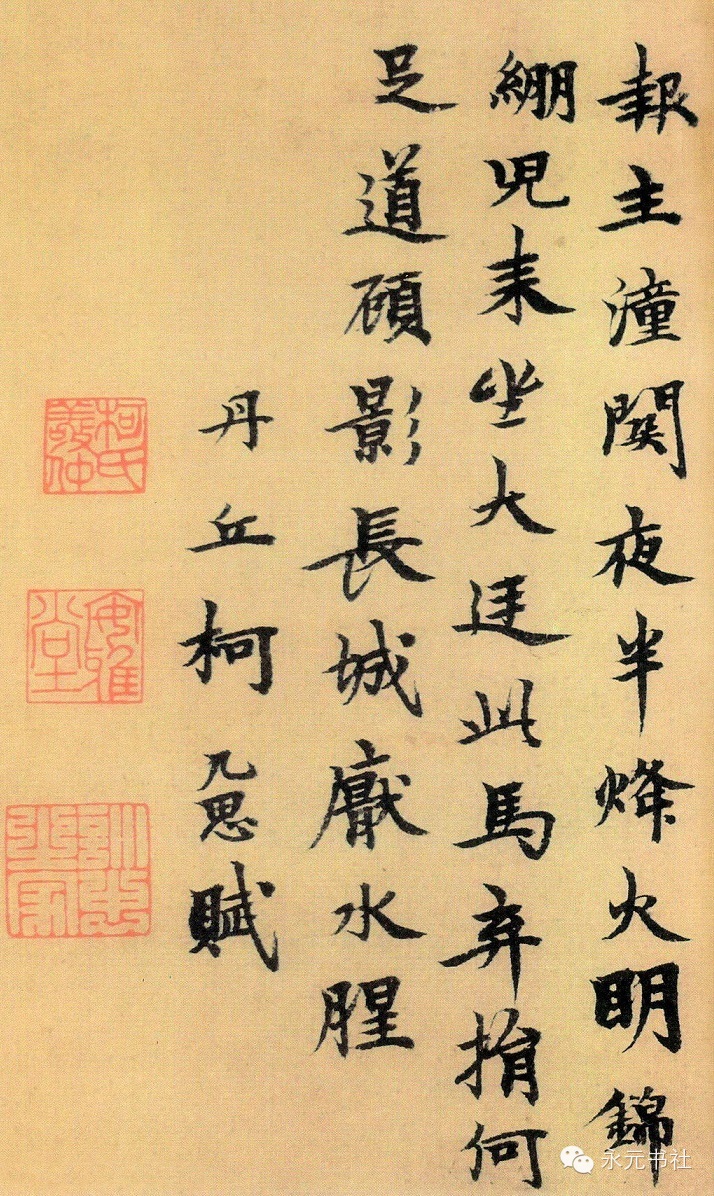 報主潼關夜半烽火明錦
繃兒來坐大廷此馬弃捐何
足道顧影長城厭水腥
丹丘柯九思賦
柯氏敬仲
訓忠之家
永元书社